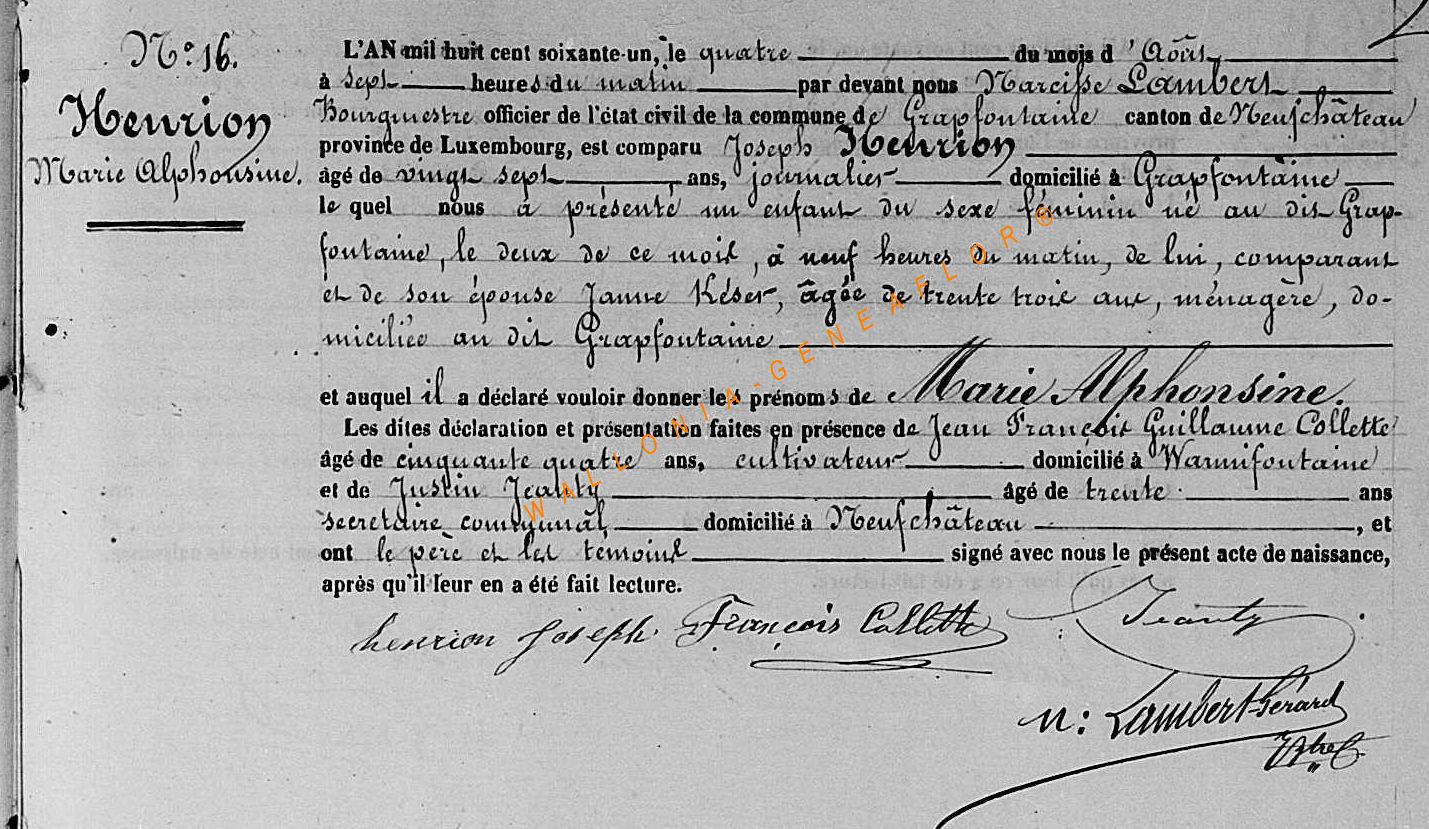 N.° 16.
Henrion
Marie Alphonsine.
L'AN mil huit cent soixante-un, le quatre du mois d'Août
à sept heures du matin par devant nous Narcisse Lambert
Bourgmestre officier de l'état civil de la commune de Grapfontaine canton de Neufchâteau
province de Luxembourg, est comparu Joseph Henrion
âgé de vingt sept ans, journalier domicilié à Grapfontaine
le quel nous a présenté un enfant du sexe féminin né au dit Grap-
fontaine, le deux de ce mois, à neuf heures du matin, de lui, comparant
et de son épouse Janne Késer, âgée de trente trois ans, ménagère, do-
miciliée au dit Grapfontaine
et auquel il a déclaré vouloir donner les prénoms de Marie Alphonsine.
Les dites déclaration et présentation faites en présence de Jean François Guillaume Collette
âgé de cinquante quatre ans, cultivateur domicilié à Warmifontaine
et de Justin Jeanty âgé de trente ans
secrétaire communal domicilié à Neufchâteau, et
ont le père et les témoins signé avec nous le présent acte de naissance,
après qu'il leur en a été fait lecture.
henrion Joseph François Collette Jeanty
N: Lambert-Gérard
WALLONIA-GENEAFLOR®